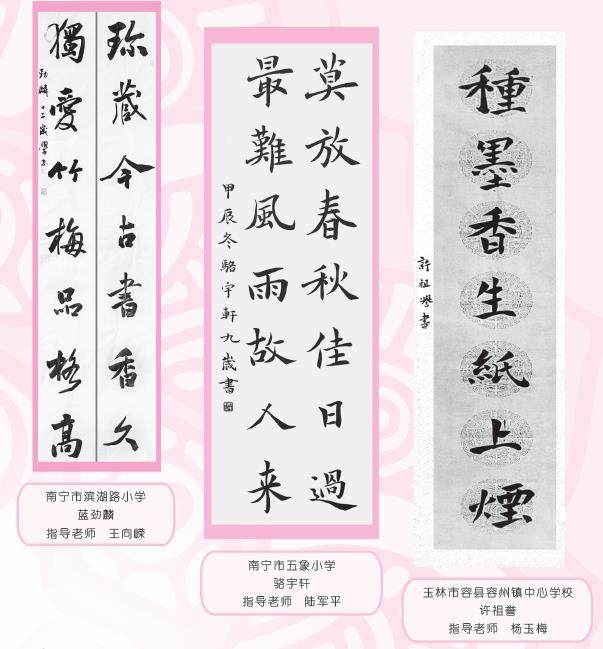 珎藏今古書香久
獨愛竹梅品格高
劲麟十二歲學書
南宁市滨湖路小学
蓝劲麟
指导老师 王向嵘
莫放春秋佳日過
最難風雨故人来
甲辰冬駱宇軒九歲書
南宁市五象小学
骆宇轩
指导老师 陆军平
種墨香生紙上煙
許祖譽書
玉林市容县容州镇中心学校
许祖誉
指导老师 杨玉梅